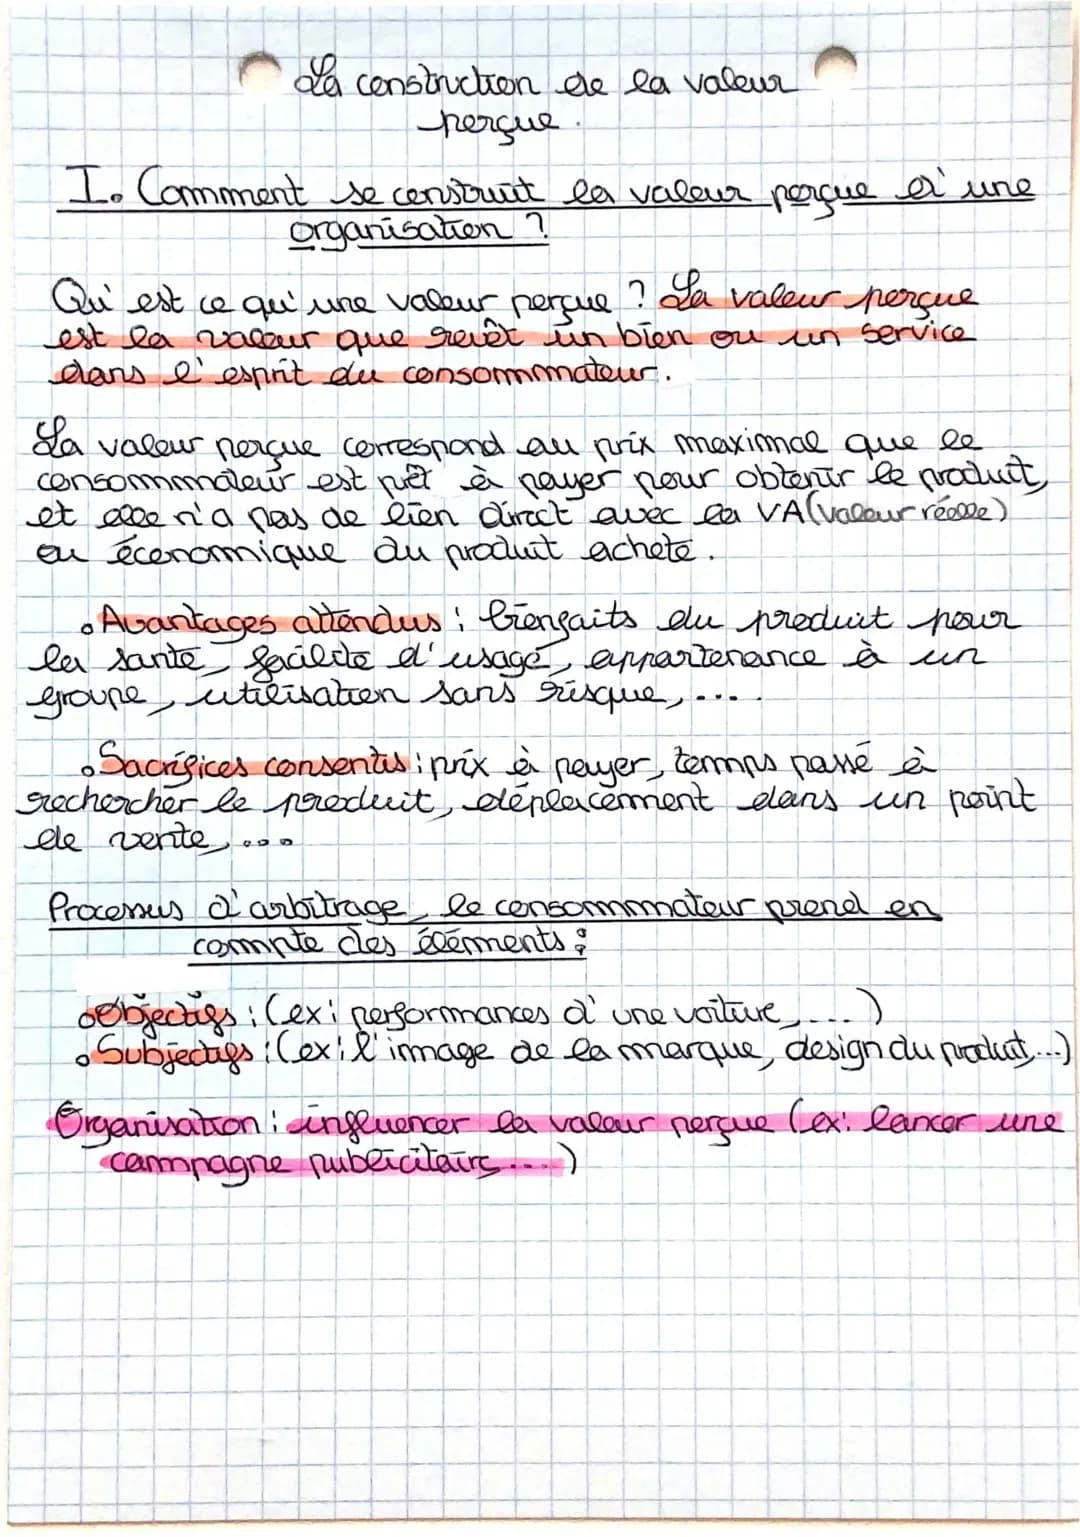 La construction de la valeur
perçue.
I. Comment se construit la valeur perçue d'une
organisation ?
Qu'est ce qu'une valeur perçue ? La valeur perçue
est la valeur que revêt un bien ou un service
dans l'esprit du consommateur.
La valeur perçue correspond au prix maximal que le
consommateur est prêt à payer pour obtenir le produit,
et elle n'a pas de lien direct avec la VA (valeur réelle)
ou économique du produit acheté.
• Avantages attendus : bienfaits du produit pour
la santé, facilité d'usage, appartenance à un
groupe, utilisation sans risque, ....
• Sacrifices consentis : prix à payer, temps passé à
rechercher le produit, déplacement dans un point
de vente, ...
Processus d'arbitrage, le consommateur prend en
compte des éléments :
• Objectifs : (ex : performances d'une voiture, ....)
• Subjectifs : (ex : l'image de la marque, design du produit, ...)
Organisation : influencer la valeur perçue (ex : lancer une
campagne publicitaire ....)